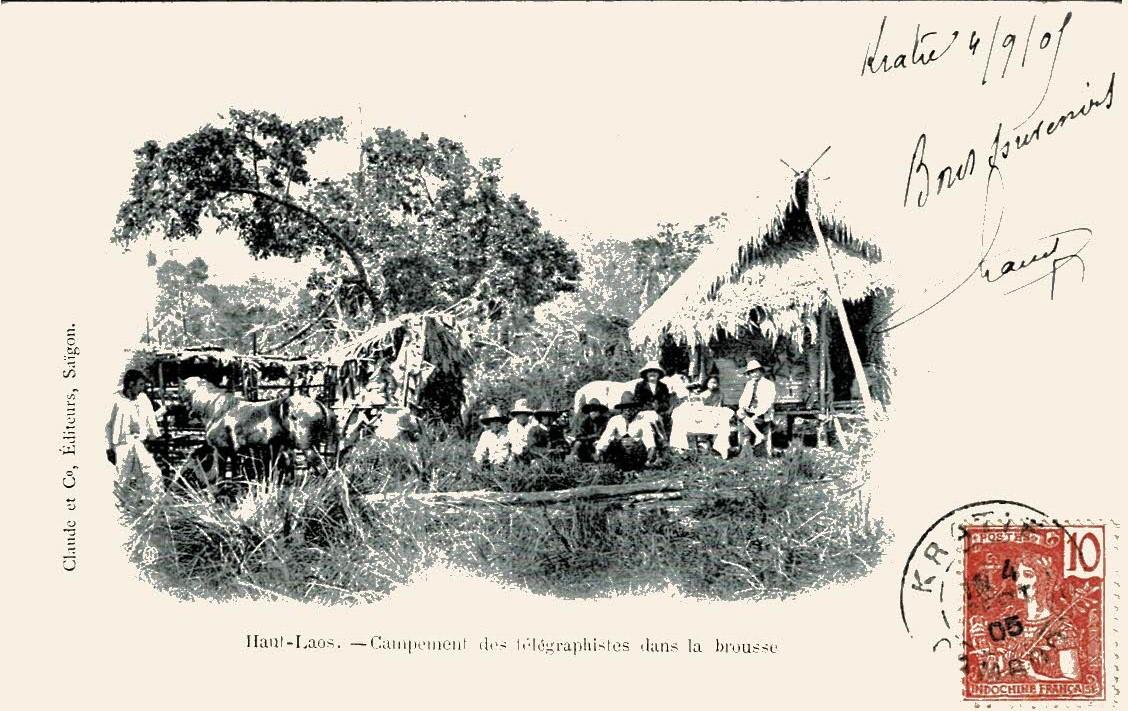 Kratié 4/9/05
Bons souvenirs
Claude et Co, Éditeurs, Saïgon.
KRATIÉ
4
05
POSTES
10
INDOCHINE FRANÇAISE
Haut-Laos. — Campement des télégraphistes dans la brousse